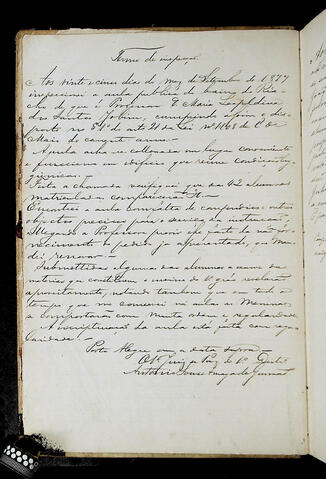 Termo de inspeçaõ
Aos vinte e cinco dias do mez de Setembro de 1877
inspecionei a aula publica do bairro do Ria-
cho de que é Professora D. Maria Leopoldina
dos Santos Jobim, cumprindo assim o dis-
posto no § 1º do art. 21 da Lei nº 1108 de
Maio do corrente anno.
A aula acha-se collocada em lugar conveniente
e funcciona em edificio que reune condições hy-
gienicas.
Feita a chamada verifiquei que das 42 alumnas
matriculadas compareceraõ
Encontrei a aula de compendios e outros
objectos precisos para o serviço da instrucçaõ,
allegando a Professora provir esta falta de naõ for-
necimento o pedido já apresentado, que man-
dei renovar.
Submettidas algumas das alumnas a exame das
materias que constituem o ensino do 1º gráo revelaraõ
aproveitamento, notando tambem que em todo o
tempo que me conservei na aula as meninas
se comportaraõ com muita ordem e regularidade.
A escripturaçaõ da aula está feita com regu-
laridade.
Porto Alegre em a data supra
O Juiz de Paz do 1º
Antonio